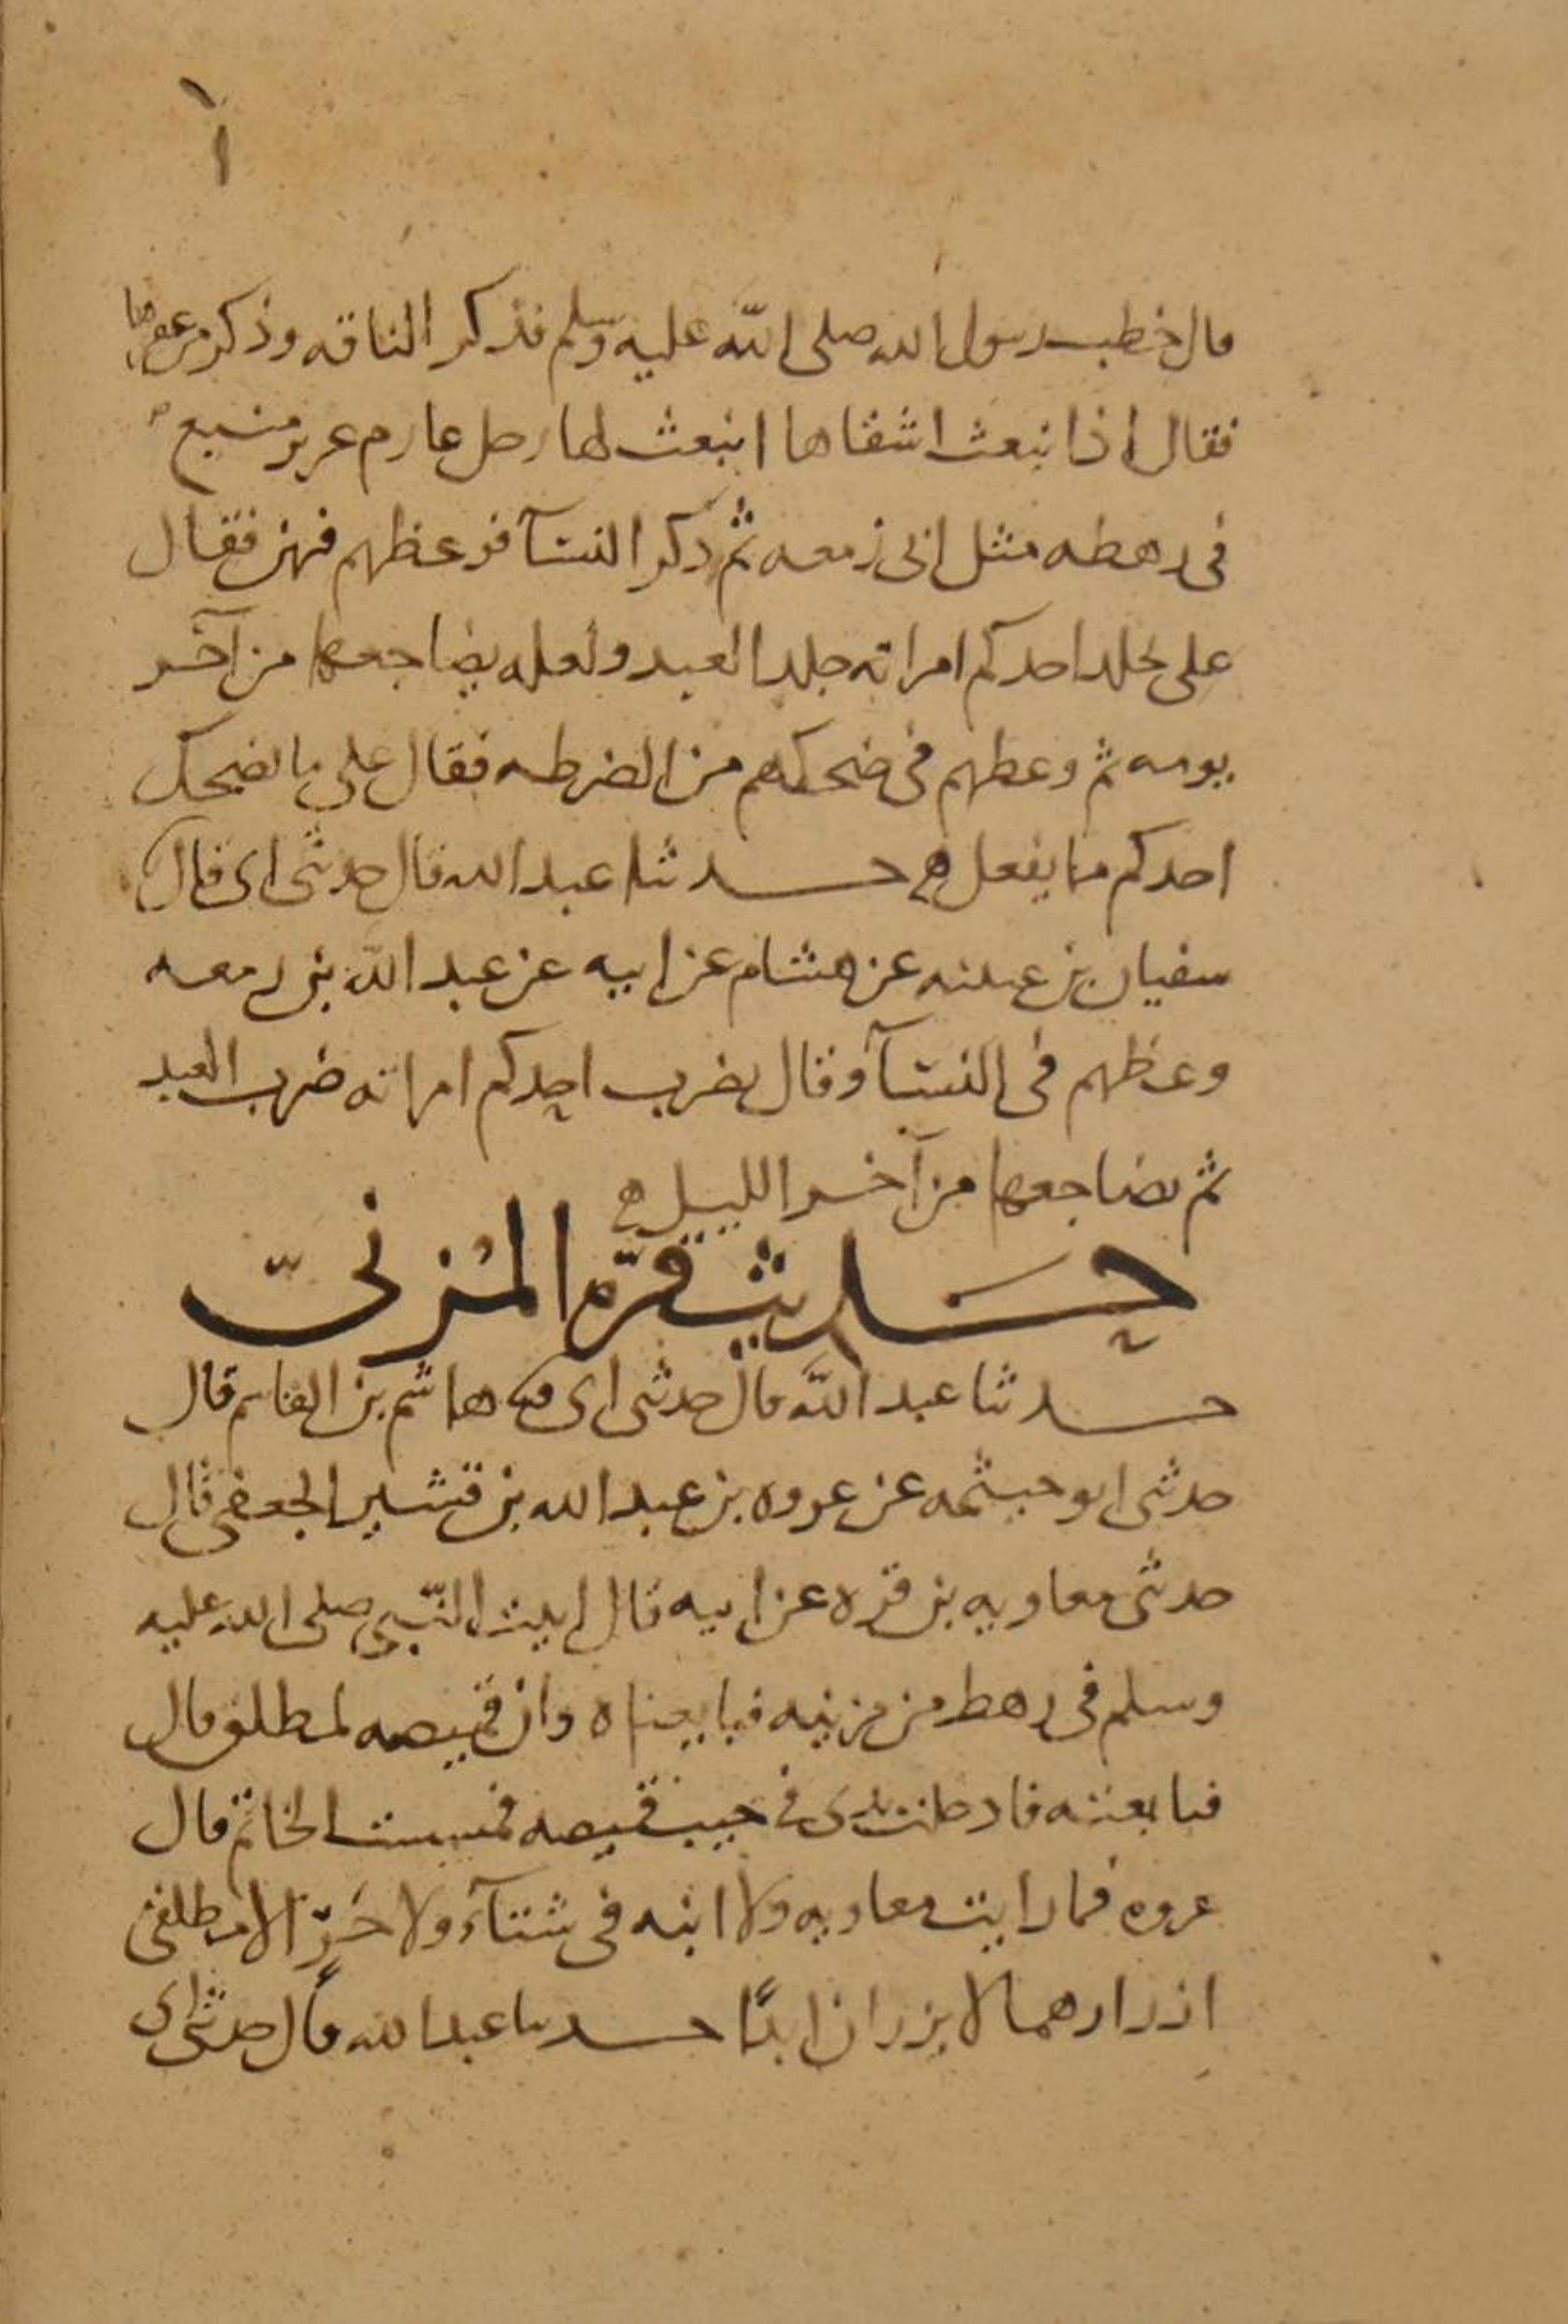 قال خطب رسول الله صلى الله عليه وسلم فذكر الناقه وذكر من عقرها
فقال اذا نبعث اشقاها انبعث لها رجل عارم عزيز منيع
فى رهطه مثل ابى زمعه ثم ذكر النسآ فوعظهم فيهن فقال
على يجلد احدكم امراته جلد العبد ولعله يضاجعها من آخر
يومه ثم وعظهم فى ضحكهم من الضرطه فقال على ما يضحك
احدكم مما يفعل حدثنا عبد الله قال حدثنى ابى قال
سفيان بن عيينه عن هشام عن ابيه عن عبد الله بن زمعه
وعظهم فى النسآ وقال يضرب احدكم امراته ضرب العبد
ثم يضاجعها من آخر الليل
حَديث قرّه المُزنىّ
حدثنا عبد الله قال حدثنى ابى هاشم بن القاسم قال
حدثنى ابو خيثمه عن عروه بن عبد الله بن قشير الجعفى قال
حدثنى معاويه بن قره عن ابيه قال اتيت النّبى صلى الله عليه
وسلم فى رهط من مزينه فبايعناه وان قميصه لمطلق قال
فبايعته فادخلت يدى فى جيب قميصه فمسست الخاتم قال
عروه فما رايت معاويه ولا ابنه فى شتآء ولا حَرّ الا مطلقى
ازرارهما لا يزران ابدًا حدثنا عبد الله قال حدثنى ابى